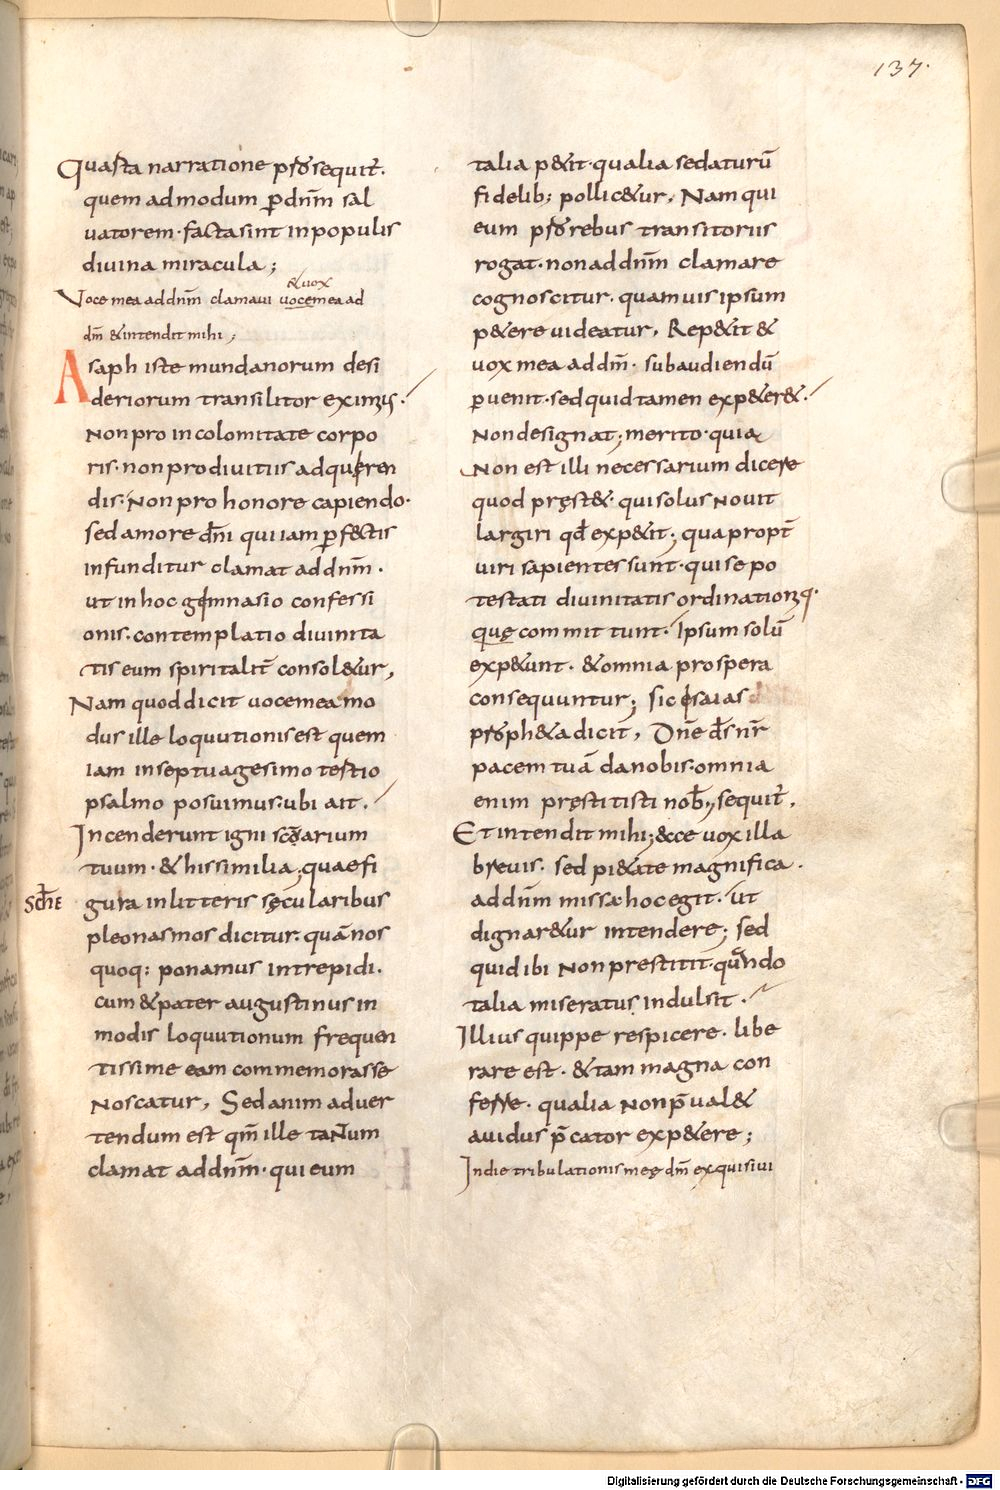 137.
Quarta narratione psđ sequit̅.
quem ad modum p̱ dn̅m sal
uatorem· facta sint in populis
diuina miracula;
& uox
Voce mea ad dn̅m clamaui uoce mea ad
dm̅ & intendit mihi;
Asaph iste mundanorum desi
deriorum transilitor eximiꝰ.
Non pro incolomitate corpo
ris· non pro diuitiis adquęren
dis· Non pro honore capiendo·
sed amore dn̅i qui iam p̱fectis
infunditur clamat ad dn̅m·
ut in hoc gimnasio confessi
onis· contemplatio diuinita
tis eum spiritalit̅ consol&ur,
Nam quod dicit uoce mea mo
dus ille loquutionis est quem
iam in septuagesimo tertio
psalmo posuimus· ubi ait.
Incenderunt igni sc̅ōarium
tuum· & his similia; quae fi
sche̅
gura in litteris sęcularibus
pleonasmos dicitur· quā nos
quoq: ponamus intrepidi.
cum & pater augustinus in
modis loquutionum frequen
tissime eam commemorasse
Noscatur, Sed animaduer
tendum est qm̅ ille tant̅um
clamat ad dn̅m· qui eum
talia p&it· qualia se daturū
fidelib; pollic&ur, Nam qui
eum psđ rebus transitoriis
rogat· non ad dn̅m clamare
cognoscitur· quamuis ipsum
p&ere uideatur, Rep&it &
uox mea ad dm̅· subaudiendū
p̱uenit· sed quid tamen exp&er&·
Non designat; merito· quia
Non est illi necessarium dicere
quod pręst&· qui solus Nouit
largiri qđ exp&it; qua propt̅
uiri sapientes sunt· qui se po
testati diuinitatis ordinationiq·
quę committunt· Ipsum solū
exp&unt· & omnia prospera
consequuntur; sic esaias
psđph&a dicit, Dn̅e ds̅ nr̅
pacem tuā da nobis· omnia
enim pręstitisti nob̅, sequit̅,
Et intendit mihi; &cce uox illa
breuis· sed pi&ate magnifica·
ad dn̅m missa hoc egit· ut
dignar&ur intendere; sed
quid ibi Non prestitit· quando
talia miseratus indulsit·
Illius quippe respicere· libe
rare est· & tam magna con
ferre· qualia Non p̅ual&
auidus p̅cator exp&ere;
In die tribulationis meę dm̅ exquisiui
Digitalisierung gefördert durch die Deutsche Forschungsgemeinschaft - DFG